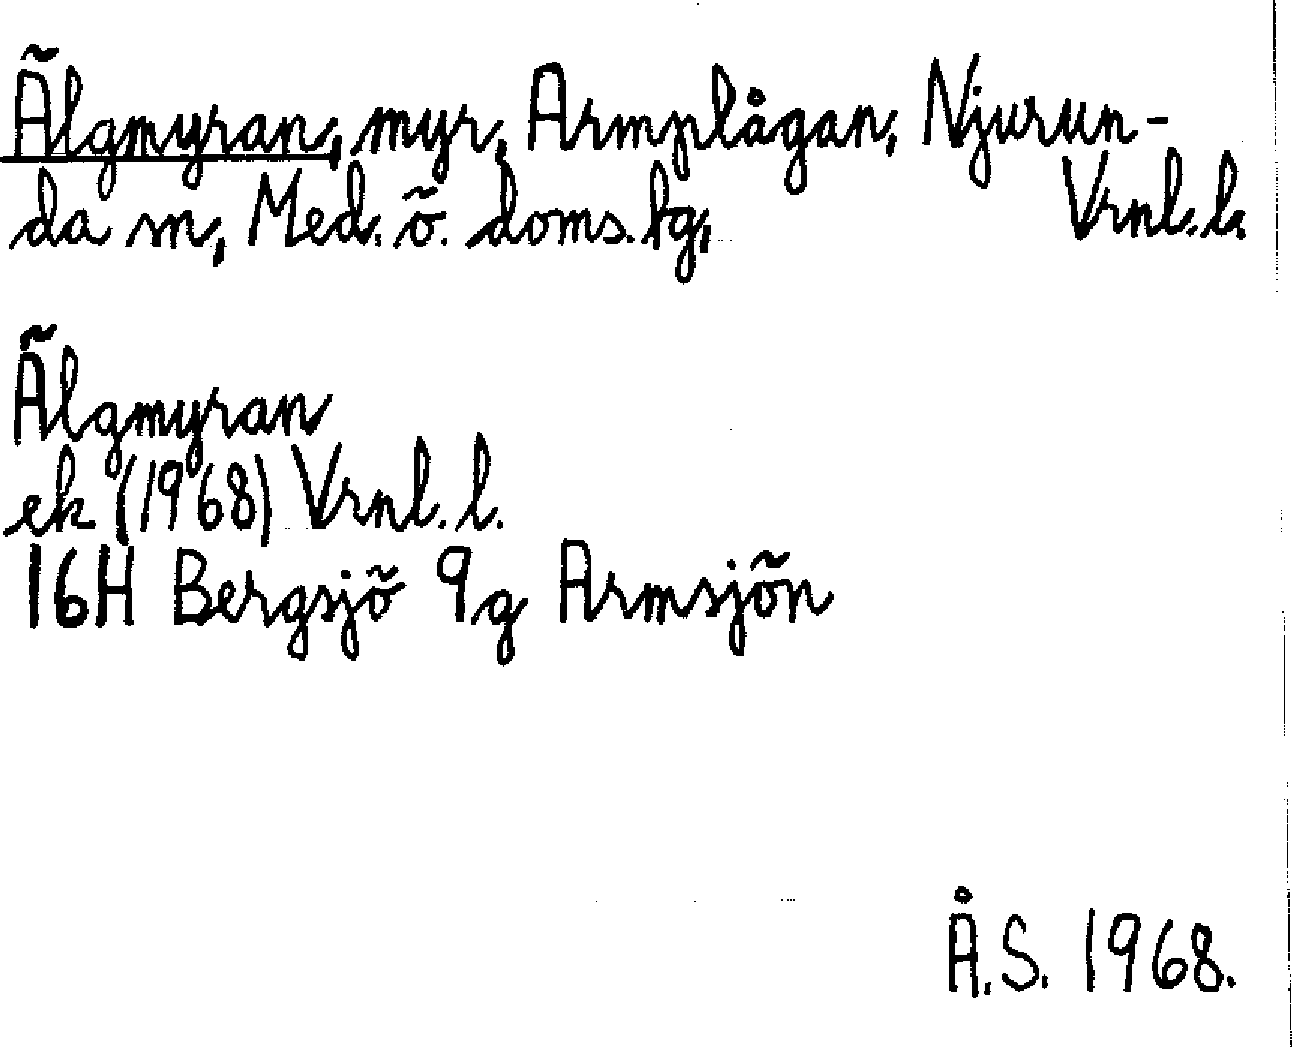 Älgmyran, myr, Armplågan, Njurun-
da sn, Med. ö. doms.bg, Vrnl.l.
Älgmyran
ek (1968) Vrnl.l.
16H Bergsjö 9g Armsjön
Å.S. 1968.